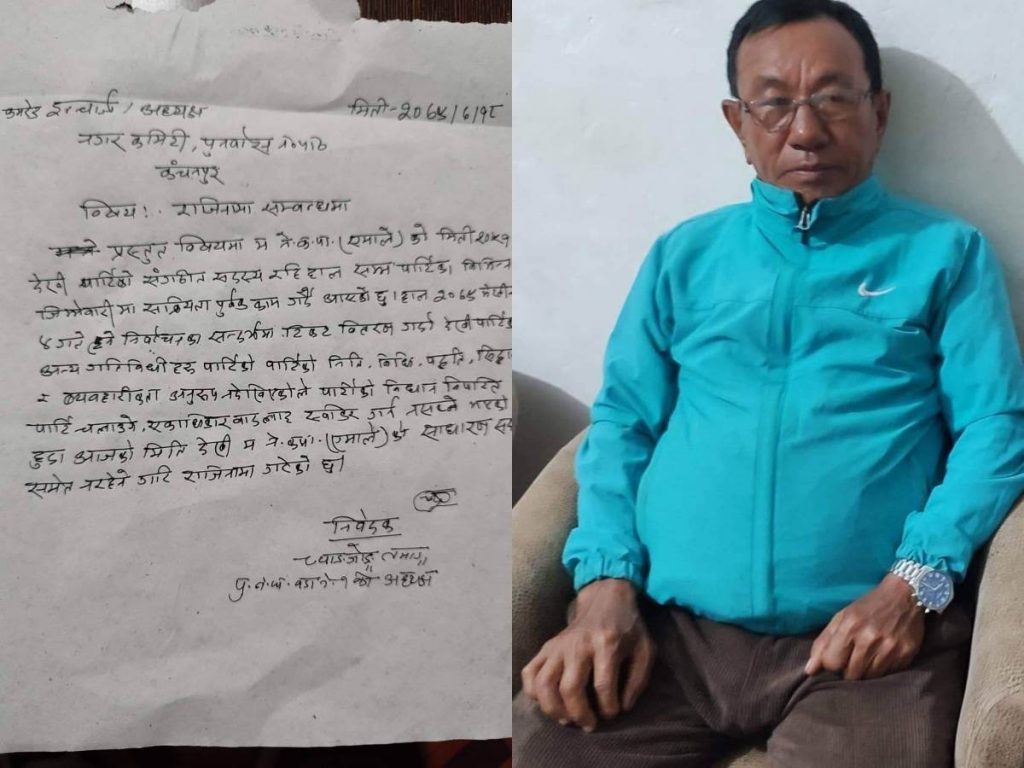 कमरेड इन्चार्ज / अध्यक्ष मिती-२०७९/६/१८
नगर कमिटी, पुनर्वास न॰पा॰
कंचनपुर
बिषय:- राजिनामा सम्बन्धमा
प्रस्तुत बिषयमा म ने.क.पा. (एमाले) को मिती २०५१
देखी पार्टिको संगठीत सदस्य रहि हाल सम्म पार्टिका बिभिन्न
जिम्मेवारीमा सक्रियता पुर्वक काम गर्दै आएको छु। हाल २०७९
४ गते हुने निर्वाचनका सन्दर्भमा टिकट बितरण गर्दा देखी पार्टिका
अन्य गतिविधीहरु पार्टिको पार्टिको निति, बिधि, पद्धति,
र व्यवहारिकता अनुरुप नदेखिएकोले पार्टीको बिधान बिपरित
पार्टि चलाउने, एकाधिकारवादलाई स्वीकार गर्न नसक्ने भएको
हुदा आजको मिति देखी म ने.क.पा. (एमाले) को साधारण
समेत नरहने गरि राजिनामा गरेको छु।
निवेदक
पु.न.पा. वडा नं-१ को अध्यक्ष